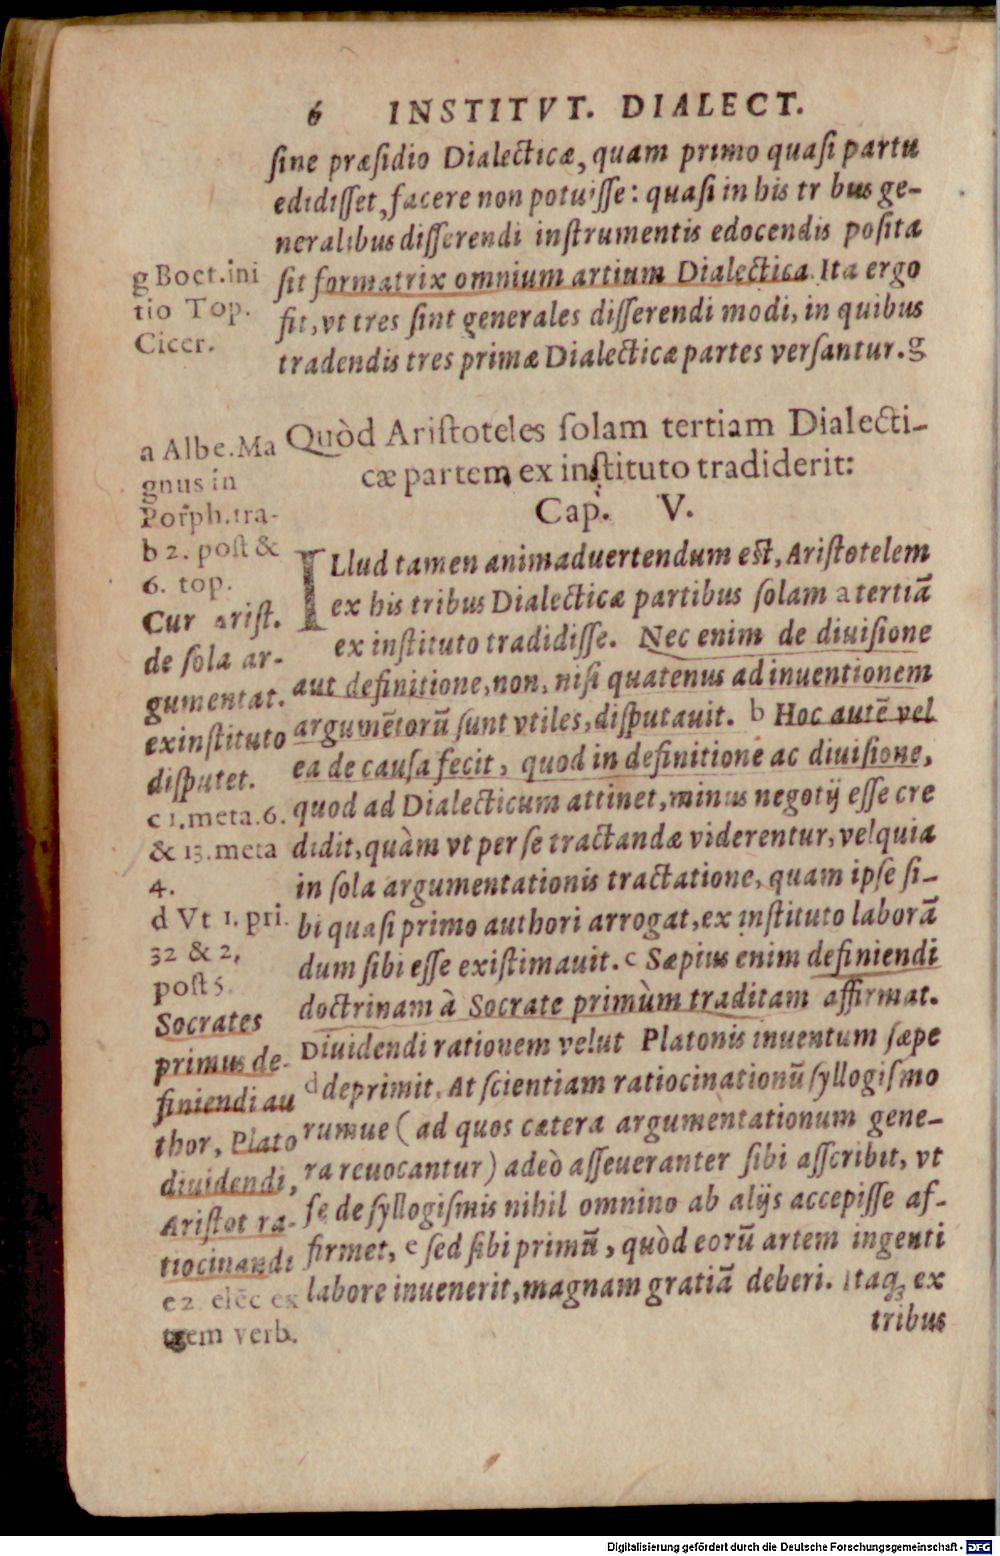 6 INSTITVT. DIALECT.
ſine præſidio Dialecticæ, quam primo quaſi partu
edidiſſet, facere non potuiſſe: quaſi in his tr bus ge-
neralibus diſſerendi inſtrumentis edocendis poſita
ſit formatrix omnium artium Dialectica. Ita ergo
fit, vt tres ſint generales diſſerendi modi, in quibus
tradendis tres primæ Dialecticæ partes verſantur. g
g Boet. ini
tio Top.
Cicer.
Quòd Ariſtoteles ſolam tertiam Dialecti-
cæ partem ex inſtituto tradiderit:
Cap. V.
ILlud tamen animaduertendum eſt, Ariſtotelem
ex his tribus Dialecticæ partibus ſolam a tertiã
ex inſtituto tradidiſſe. Nec enim de diuiſione
aut definitione, non, niſi quatenus ad inuentionem
argumẽtorũ ſunt vtiles, diſputauit. b Hoc autẽ vel
ea de cauſa fecit, quod in definitione ac diuiſione,
quod ad Dialecticum attinet, minus negotij eſſe cre
didit, quàm vt per ſe tractandæ viderentur, vel quia
in ſola argumentationis tractatione, quam ipſe ſi-
bi quaſi primo authori arrogat, ex inſtituto laborã
dum ſibi eſſe exiſtimauit. c Sæpius enim definiendi
doctrinam à Socrate primùm traditam affirmat.
Diuidendi rationem velut Platonis inuentum ſæpe
d deprimit. At ſcientiam ratiocinationũ ſyllogiſmo
rumue (ad quos cætera argumentationum gene-
ra reuocantur) adeò aſſeueranter ſibi aſſcribit, vt
ſe de ſyllogiſmis nihil omnino ab alijs accepiſſe af-
firmet, e ſed ſibi primũ, quòd eorũ artem ingenti
labore inuenerit, magnam gratiã deberi. Itaq; ex
tribus
a Albe. Ma
gnus in
Porph. tra-
b 2. poſt &
6. top.
Cur ariſt.
de ſola ar-
gumentat.
ex inſtituto
diſputet.
c 1. meta. 6.
& 13. meta
4.
d Vt 1. pri.
32 & 2,
poſt 5.
Socrates
primus de-
finiendi au
thor, Plato
diuidendi,
Ariſtot ra-
tiocinandi
e 2 elẽc ex
trem verb.
Digitalisierung gefördert durch die Deutsche Forschungsgemeinschaft - DFG